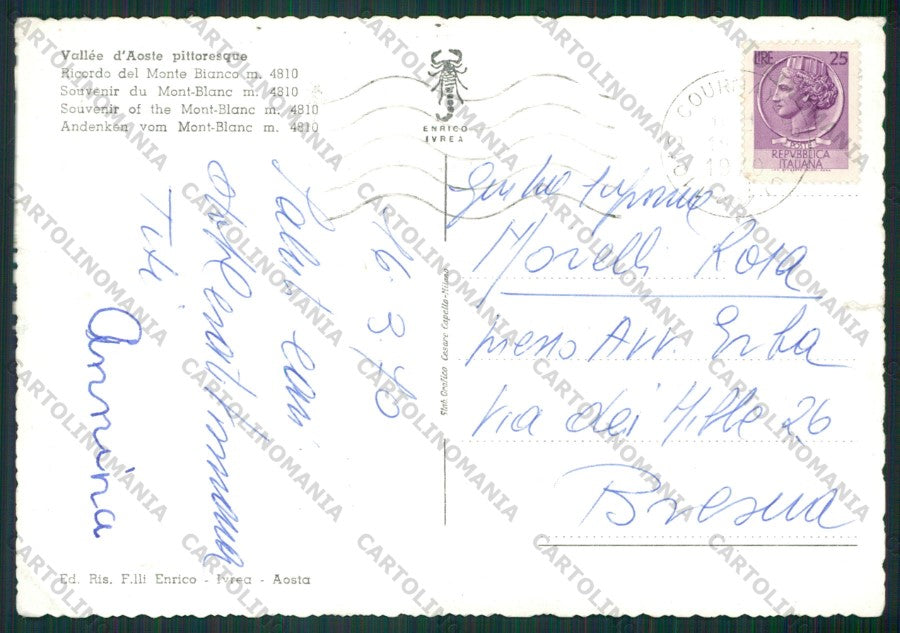 Vallée d'Aoste pittoresque
Ricordo del Monte Bianco m. 4810
Souvenir du Mont-Blanc m. 4810
Souvenir of the Mont-Blanc m. 4810
Andenken vom Mont-Blanc m. 4810
ENRICO
IVREA
LIRE 25
POSTE
REPVBBLICA
ITALIANA
26.3.70
Saluti cari
Titi
Annina
Stab. Grafico Cesare Capello - Milano
Gentile Signorina
Morelli Rosa
presso Avv. Erba
Via dei Mille 26
Brescia
Ed. Ris. F.lli Enrico - Ivrea - Aosta
CARTOLINOMANIA